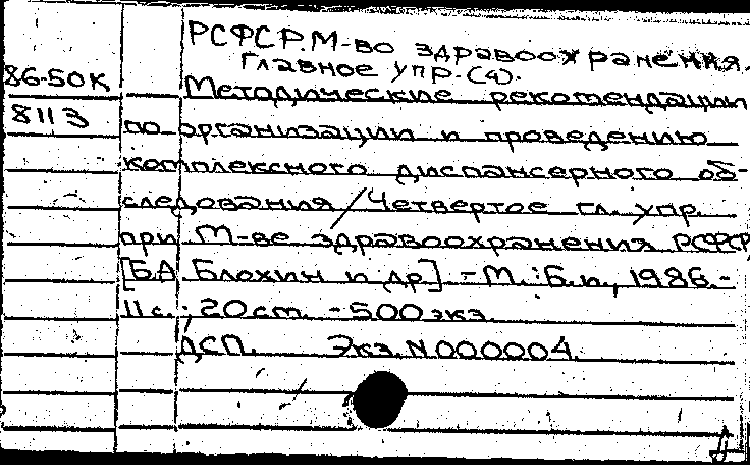 РСФСР. М-во здравоохранения.
Главное упр. (4).
86-50К
Методические рекомендации
8113
по организации и проведению
комплексного диспансерного об-
следования / Четвертое гл. упр.
при М-ве здравоохранения РСФСР
[Б.А. Блохин и др.] - М.: Б.и., 1986.-
11 с.; 20 см. - 500 экз.
ДСП. Экз. N 000004.